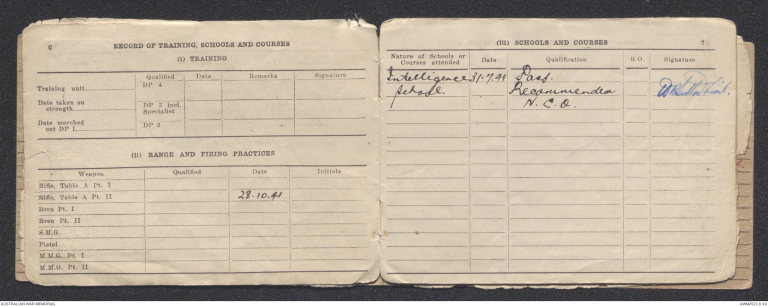 6
RECORD OF TRAINING, SCHOOLS AND COURSES
(i) TRAINING
Qualified Date Remarks Signature
Training unit DP 4
Date taken on strength DP 3 incl. Specialist
Date marched out DP 1 DP 2
(ii) RANGE AND FIRING PRACTICES
Weapon Qualified Date Initials
Rifle, Table A Pt. I
Rifle, Table A Pt. II 28.10.41
Bren Pt. I
Bren Pt. II
S.M.G.
Pistol
M.M.G. Pt. I
M.M.G. Pt. II
(iii) SCHOOLS AND COURSES 7
Nature of Schools or Courses attended Date Qualification R.O. Signature
Intelligence 31.7.41 Pass.
School Recommended
N.C.O.
AUSTRALIAN WAR MEMORIAL